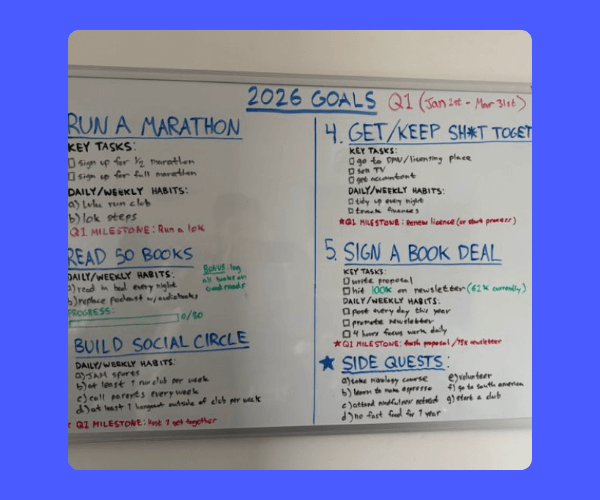 2026 GOALS Q1 (Jan 1st - Mar 31st)
RUN A MARATHON
KEY TASKS:
sign up for 1/2 marathon
sign up for full marathon
DAILY/WEEKLY HABITS:
a) Lulu run club
b) 10k steps
Q1 MILESTONE: Run a 10k
READ 50 BOOKS
DAILY/WEEKLY HABITS:
a) read in bed every night
b) replace podcast w/ audiobooks
BONUS: log
all books on
Goodreads
PROGRESS:
0/50
BUILD SOCIAL CIRCLE
DAILY/WEEKLY HABITS:
a) JAM sports
b) at least 1 run club per week
c) call parents every week
d) at least 1 hangout outside of club per week
Q1 MILESTONE: Host 1 get together
4. GET/KEEP SH*T TOGET
KEY TASKS:
go to DMV/licensing place
TV
get accountant
DAILY/WEEKLY HABITS:
tidy up every night
track finances
★Q1 MILESTONE: Renew licence (or start process)
5. SIGN A BOOK DEAL
KEY TASKS:
write proposal
hit 100k on newsletter (62k currently)
DAILY/WEEKLY HABITS:
post every day this year
promote newsletter
4 hours focus work daily
★Q1 MILESTONE: finish proposal /75k newsletter
★ SIDE QUESTS:
a) take mixology course
b) learn to make espresso
c) attend mindfulness retreat
d) no fast food for 1 year
e) volunteer
f) go to South America
g) start a club